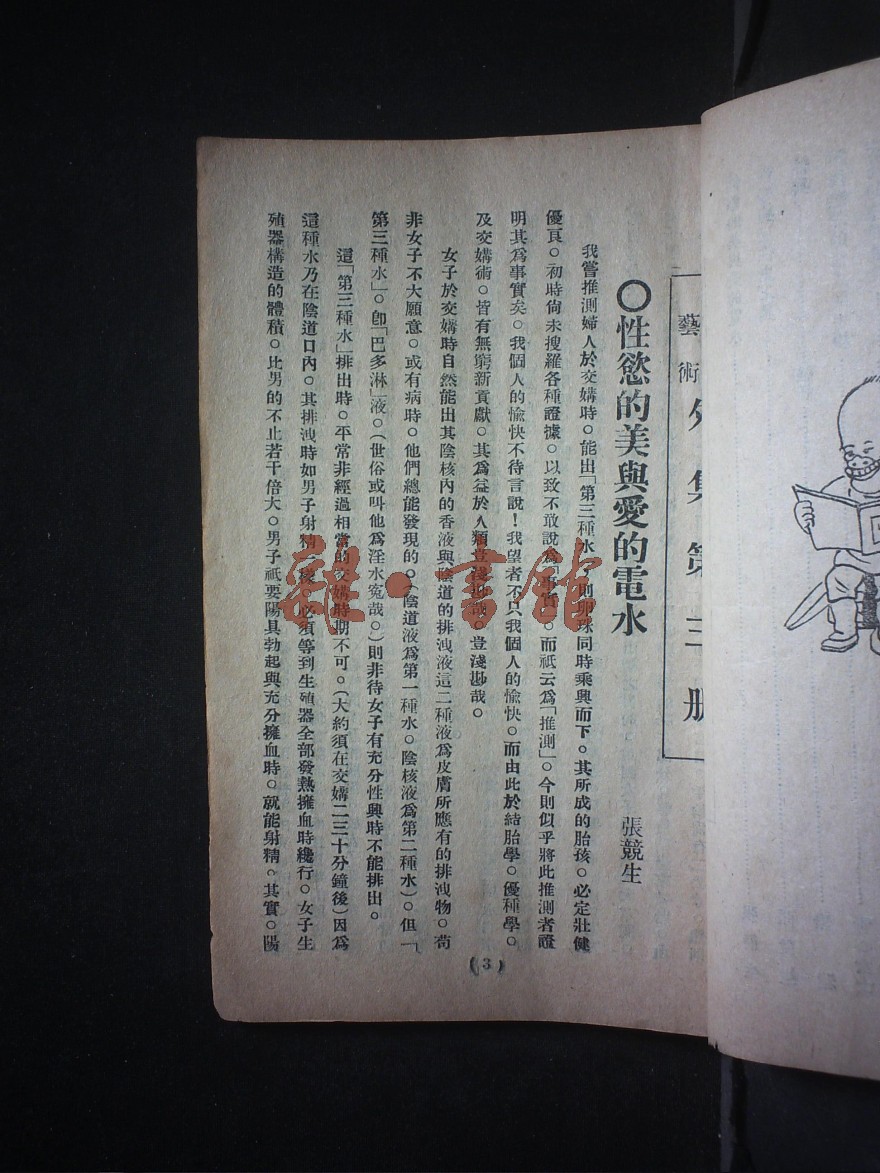 藝術 外集第三册
○性慾的美與愛的電水
張競生
我嘗推測婦人於交媾時。能出「第三種水」則卵珠同時乘興而下。其所成的胎孩。必定壯健
優良。初時尙未搜羅各種證據。以致不敢說爲事實。而祇云爲「推測」。今則似乎將此推測者證
明其爲事實矣。我個人的愉快不待言說!我望者不只我個人的愉快。而由此於結胎學。優種學。
及交媾術。皆有無窮新貢獻。其爲益於人類豈淺尠哉。豈淺尠哉。
女子於交媾時自然能出其陰核內的香液與陰道的排洩液這二種液爲皮膚所應有的排洩物。苟
非女子不大願意。或有病時。他們總能發現的。(陰道液爲第一種水。陰核液爲第二種水)。但「
第三種水」。卽「巴多淋」液。(世俗或叫他爲淫水寃哉。)則非待女子有充分性興時不能排出。
這「第三種水」排出時。平常非經過相當的交媾時期不可。(大約須在交媾二三十分鐘後)因爲
這種水乃在陰道口內。其排洩時如男子射精一樣。必須等到生殖器全部發熱擁血時纔行。女子生
殖器構造的體積。比男的不止若干倍大。男子祇要陽具勃起與充分擁血時。就能射精。其實。陽
(3)
雜·書館